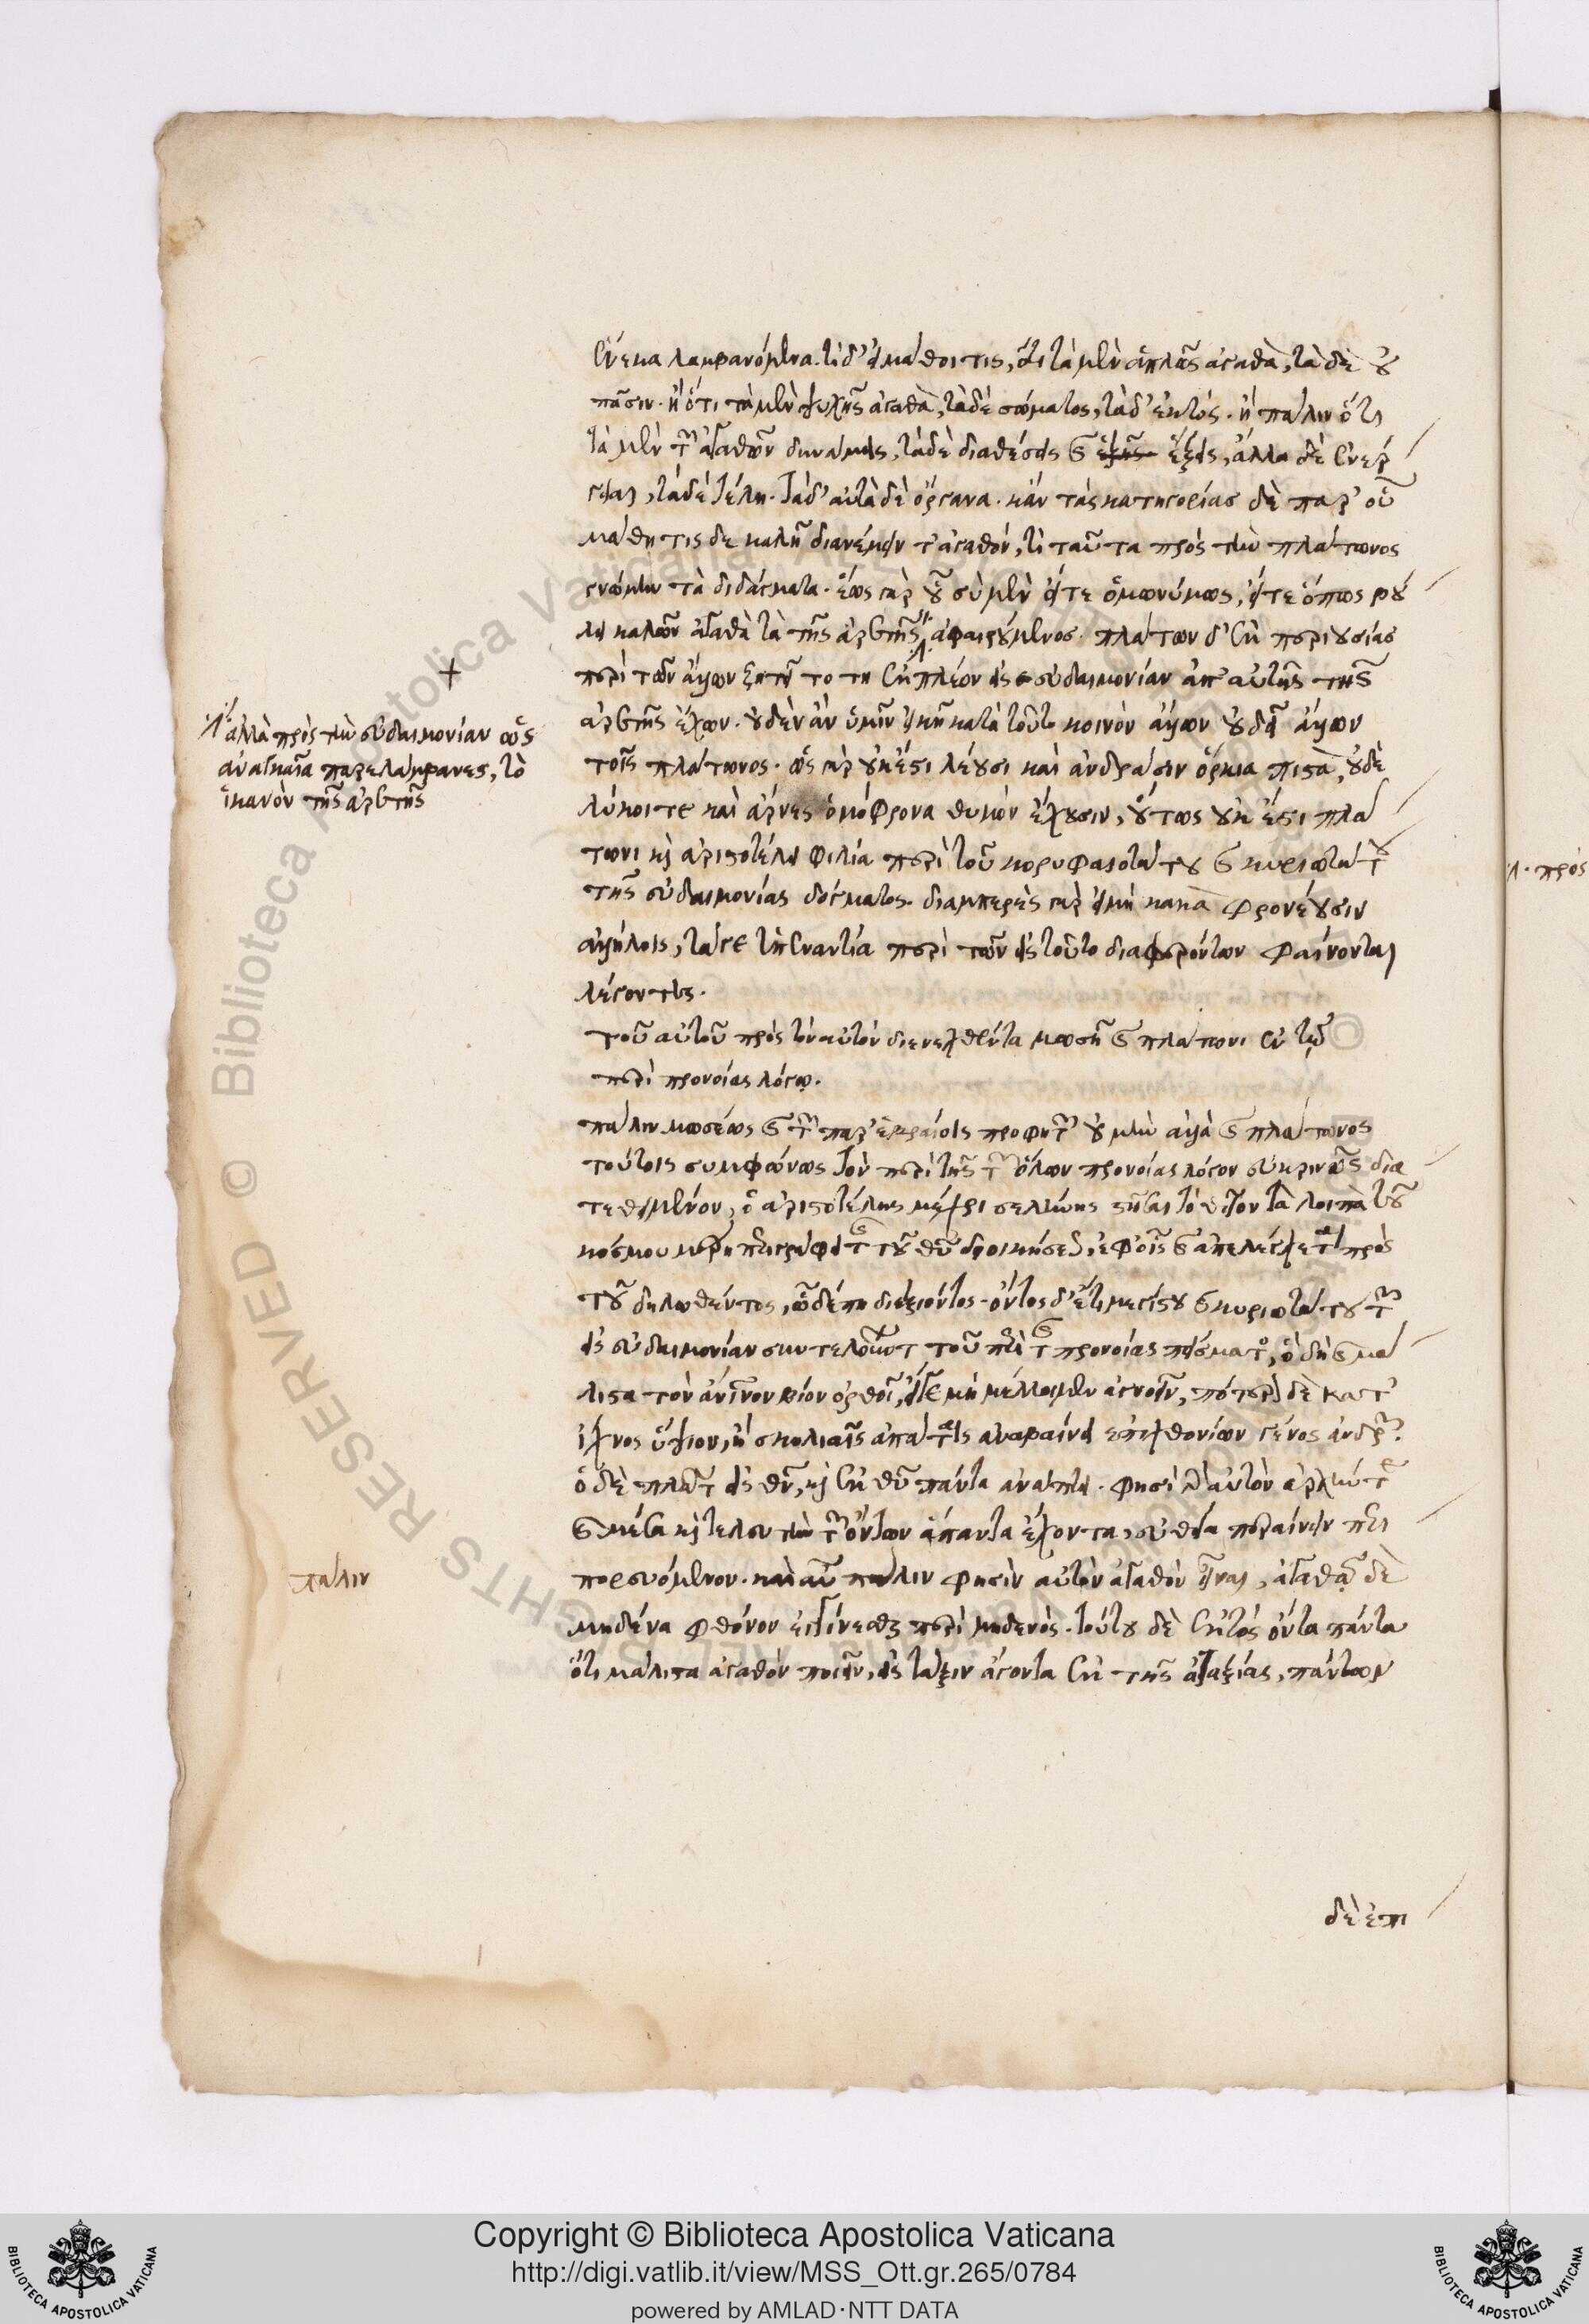 ἕνεκα λαμβανόμενα. τί δ' εἰ μάθοι τις, ὅτι τὰ μὲν ἁπλῶς ἀγαθὰ, τὰ δὲ οὐ
πᾶσιν. ἢ ὅτι τὰ μὲν ψυχῆς ἀγαθὰ, τὰ δὲ σώματος, τὰ δ' ἐκτός. ἢ πάλιν ὅτι
τὰ μὲν τῶν ἀγαθῶν δυνάμεις, τὰ δὲ διαθέσεις καὶ ἕξεις, ἄλλα δὲ ἐνέρ
γειαι, τὰ δὲ τέλη. τὰ δ' αὐτὰ δὲ ὄργανα. κἂν τὰς κατηγορίας δὲ παρ' οὗ
μάθῃ τις δεκαχῆ διανέμειν τἀγαθόν, τί ταῦτα πρὸς τὴν πλάτωνος
γνώμην τὰ διδάγματα. ἕως γὰρ οὗ σὺ μὲν εἴτε ὁμωνύμως, εἴτε ὅπως βού
λει καλῶν ἀγαθὰ τὰ τῆς ἀρετῆς ἀφαιρούμενος. πλάτων δ' ἐκ περιουσίας
περὶ τῶν ἄλλων ζητεῖ τὸ τι ἐκπλέον εἰς εὐδαιμονίαν ἀπ' αὐτῆς τῆς
ἀρετῆς ἔχων. οὐδὲν ἂν ὑμῖν εἴη κατὰ τοῦτο κοινὸν ἄλλων οὐδεῖ ἄλλων
τοῖς πλάτωνος. ὡς γὰρ οὐκ ἔστι λέουσι καὶ ἀνδράσιν ὅρκια πιστὰ, οὐδὲ
λύκοι τε καὶ ἄρνες ὁμόφρονα θυμὸν ἔχουσιν, οὕτως οὐκ ἔστι πλά
τωνι καὶ ἀριστοτέλει φιλία περὶ τοῦ κορυφαιοτάτου καὶ κυριωτάτου
τῆς εὐδαιμονίας δόγματος. διαμπερὲς γὰρ εἰ μὴ κακὰ φρονέουσιν
ἀλλήλοις, τά γε τἠναντία περὶ τῶν εἰς τοῦτο διαφερόντων φαίνονται
λέγοντες.
τοῦ αὐτοῦ πρὸς τὸν αὐτὸν διενεχθέντα μωσῆ καὶ πλάτωνι ἐν τῷ
περὶ προνοίας λόγῳ.
πάλιν μωσέως καὶ τῶν παρ' ἑβραίοις προφητῶν οὐ μὴν ἀλλὰ καὶ πλάτωνος
τούτοις συμφώνως τὸν περὶ τῆς τῶν ὅλων προνοίας λόγον εὐκρινῶς δια
τεθειμένου, ὁ ἀριστοτέλης μέχρι σελήνης στήσας τὸ θεῖον τὰ λοιπὰ τοῦ
κόσμου μέρη περιγράφει τῆς τοῦ θεοῦ διοικήσεως, ἐφ' οἷς καὶ ἀπελέγχεται πρὸς
τοῦ δηλωθέντος, ὧδέ πη διεξιόντος. ὄντος δ' ἔτι μεγίστου καὶ κυριωτάτου τῶν
εἰς εὐδαιμονίαν συντελούντων τοῦ περὶ τῆς προνοίας πείσματος, ὃ δὴ καὶ μά
λιστα τὸν ἀνθρώπινον βίον ὀρθοῖ, εἴγε μὴ μέλλοιμεν ἀγνοεῖν, πότερον δὲ κατ'
ἴχνος ὕψιον, ἢ σκολιαῖς ἀπάταις ἀναβαίνει ἐπιχθονίων γένος ἀνδρῶν.
ὁ δὲ πλάτων εἰς θεὸν, καὶ ἐκ θεοῦ πάντα ἀνάπτει. φησὶ γὰρ αὐτὸν ἀρχήν τε
καὶ μέσα καὶ τελευτὴν τῶν ὄντων ἁπάντων ἔχοντα, εὐθεῖα περαίνειν περι
πορευόμενον. καὶ αὖ πάλιν φησὶν αὐτὸν ἀγαθὸν εἶναι, ἀγαθῷ δὲ
μηδένα φθόνον ἐγγίνεσθαι περὶ μηδενός. τούτου δὲ ἐκτὸς ὄντα πάντα
ὅτι μάλιστα ἀγαθὸν ποιεῖν, εἰς τάξιν ἄγοντα ἐκ τῆς ἀταξίας, πάντων
δὲ ἐπι
ἀλλὰ πρὸς τὴν εὐδαιμονίαν ὡς
ἀναγκαῖα παρελάμβανες, τὸ
ἱκανὸν τῆς ἀρετῆς
πάλιν
πρὸς
Copyright © Biblioteca Apostolica Vaticana
http://digi.vatlib.it/view/MSS_Ott.gr.265/0784
powered by AMLAD·NTT DATA
BIBLIOTECA APOSTOLICA VATICANA
BIBLIOTECA APOSTOLICA VATICANA